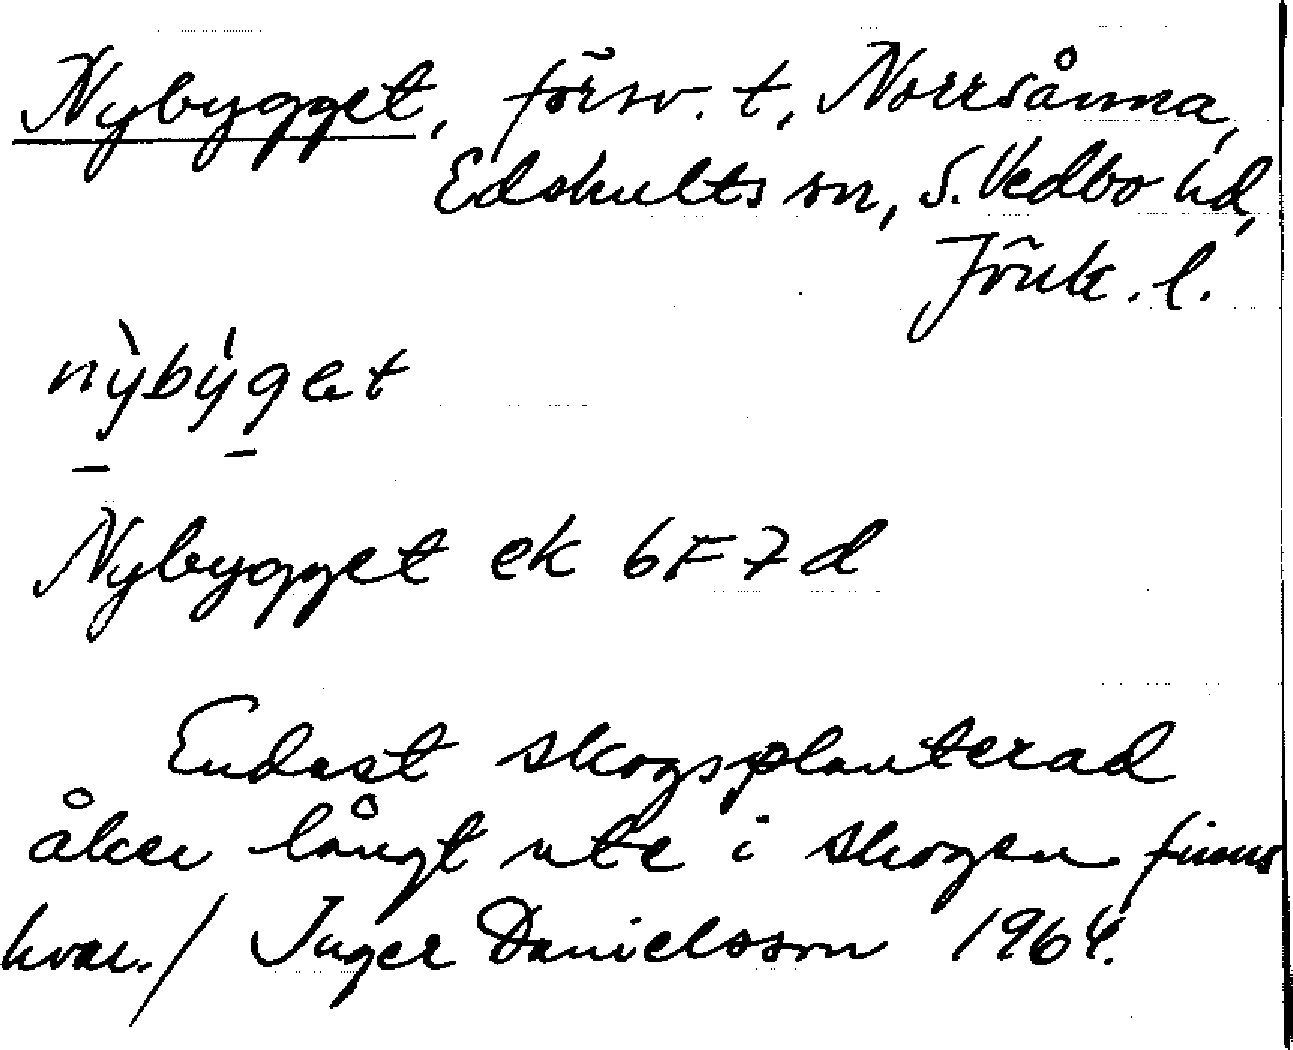 Nybygget, försv. t. Norrsånna,
Edshults sn, S. Vedbo hd,
Jönk. l.
nỳbýget
Nybygget ek 6F7d
Endast skogsplanterad
åker långt ute i skogen finns
kvar. / Inger Danielsson 1964.